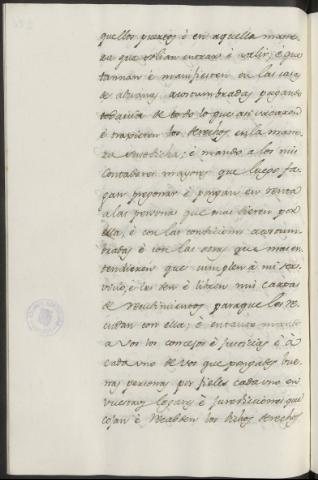 quellos puertos é en aquella mane-
ra que solian entrar é salir, é que
tarnán é manifiesten en las casas
de aduanas acostumbradas pagando
todavia de todo lo que asi cargaron
é traxieren los derechos en la mane-
ra susodicha; é mando a los mis
contadores mayores que luego fa-
gan pregonar é pongan en renta
a las personas que mas dieren por
ella, é con las condiciones acostum-
bradas é con las otras que mas en-
tendieren que cumplen á mi ser-
vicio, é les den é libren mis cartas
de recudimientos para que les re-
cudan con ella; é entanto mando
a vos los concejos é justicias é á
cada uno de vos que pongades bue-
nas personas por fieles cada uno en
vuestros logares é jurediciones que
cojan é recabden los dichos derechos